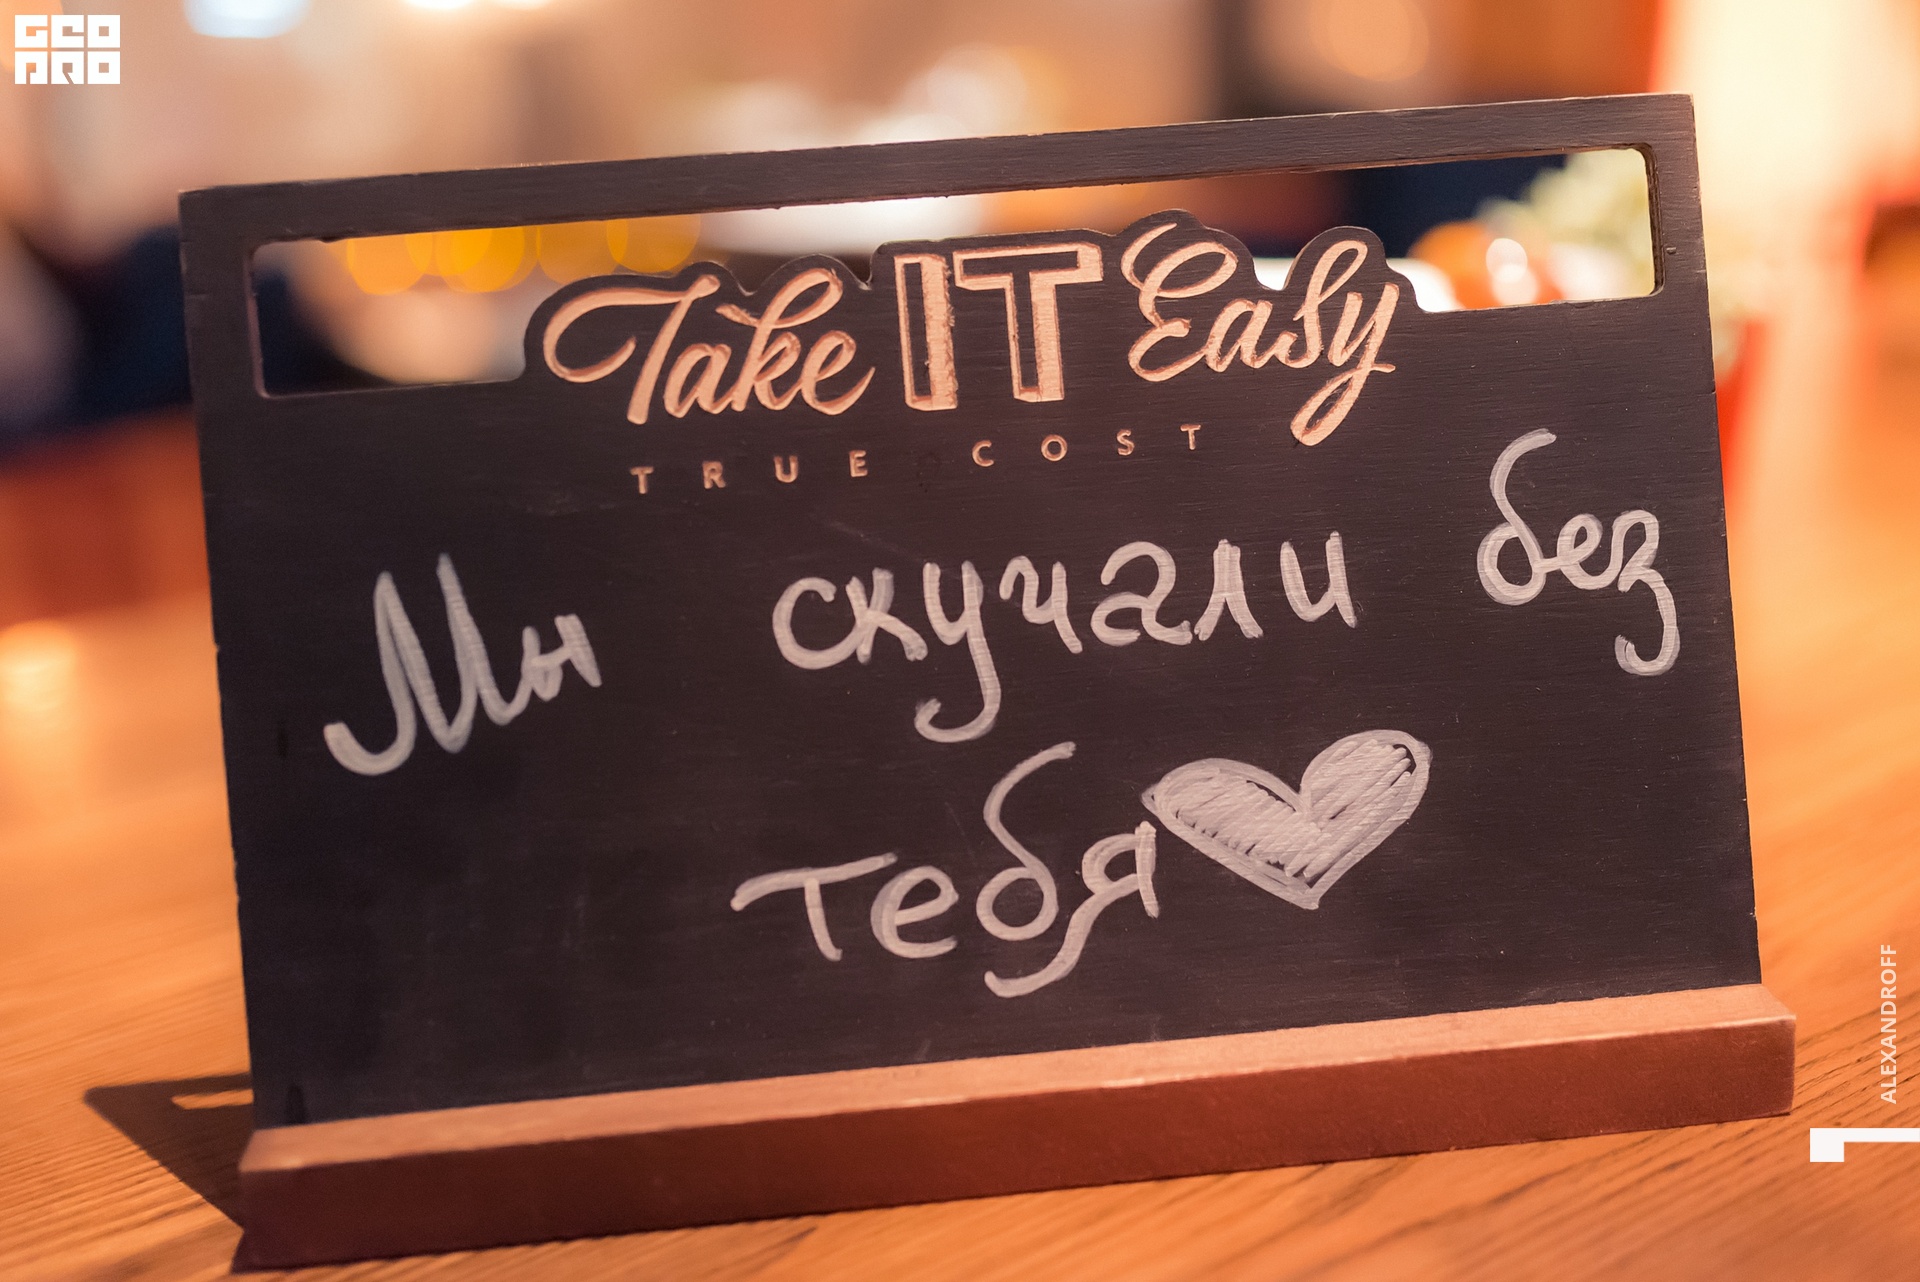 GEO
PRO
Take IT Easy
TRUE COST
Мы скучали без
тебя
ALEXANDROFF